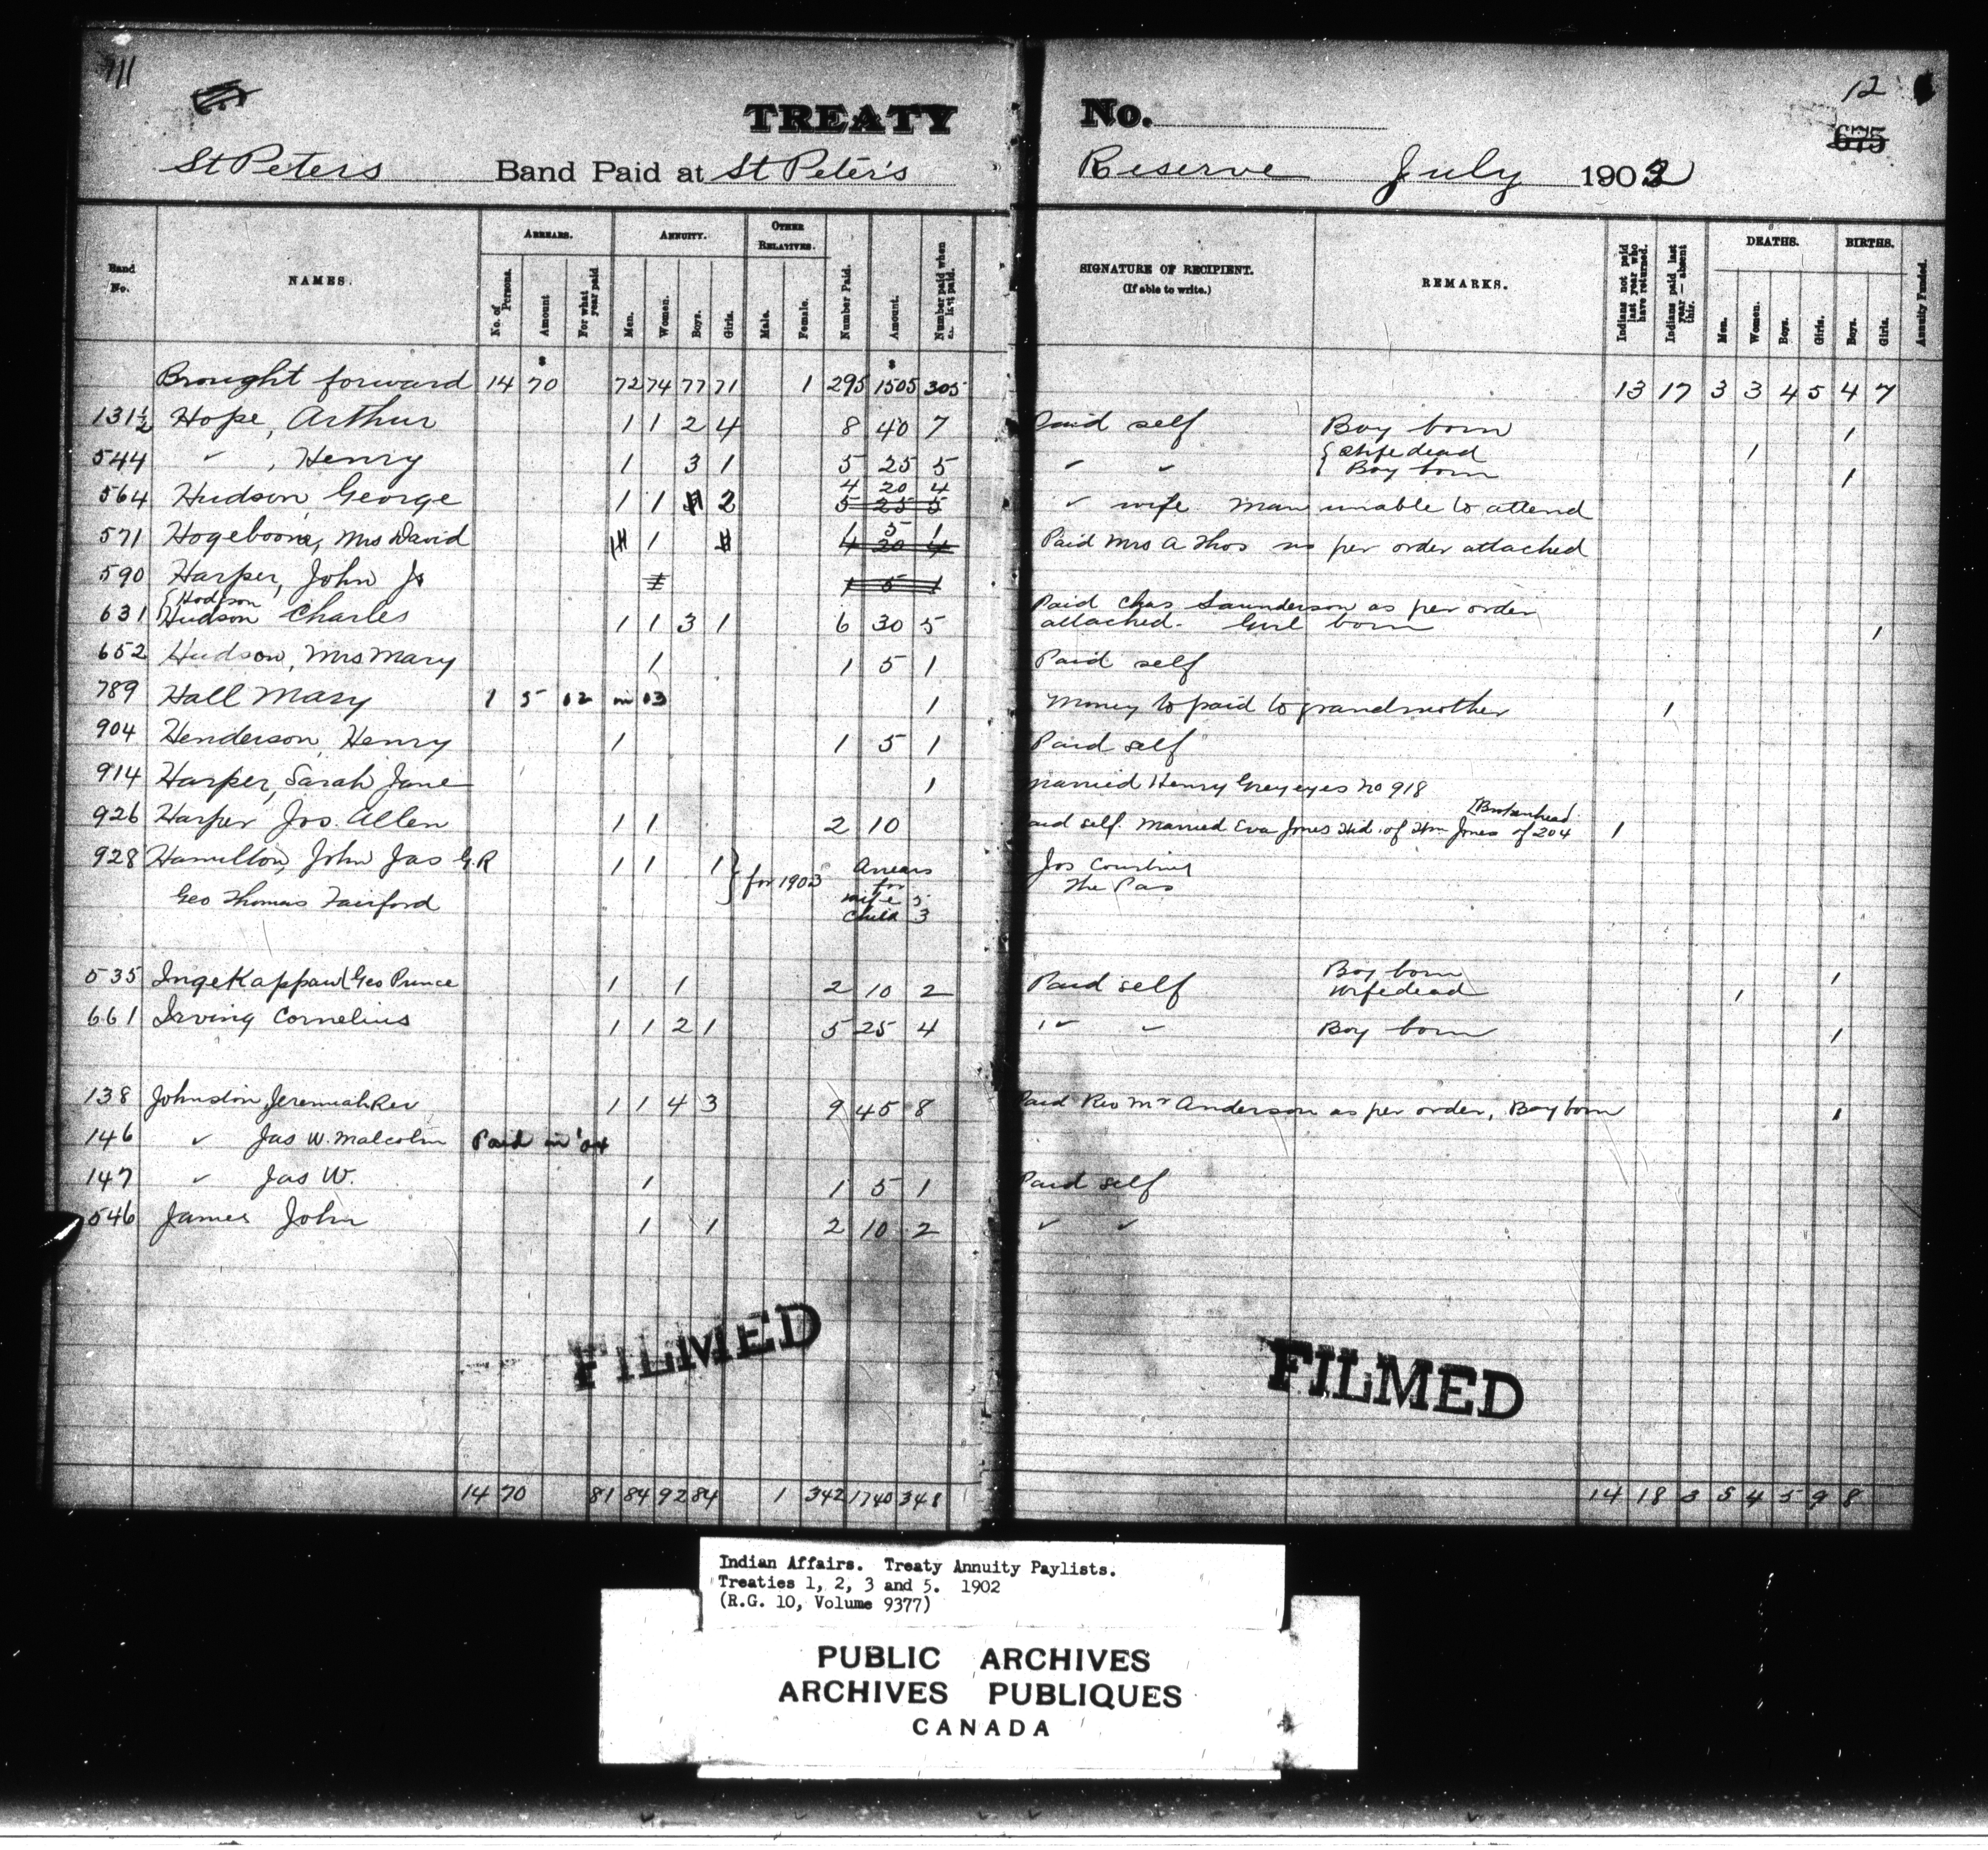 11
TREATY No.
12
675
St Peters Band Paid at St Peter's Reserve July 1902
Band No. NAMES. ARREARS. No. of Persons. Amount For what year paid ANNUITY. Men. Women. Boys. Girls. OTHER RELATIVES. Male. Female. Number Paid. Amount. Number paid when last paid. SIGNATURE OF RECIPIENT. (If able to write.) REMARKS. Indians not paid last year who have returned. Indians paid last year — absent this. DEATHS. Men. Women. Boys. Girls. BIRTHS. Boys. Girls. Annuity Funded.
Brought forward 14 70 72 74 77 71 1 295 1505 305 13 17 3 3 4 5 4 7
131½ Hope, Arthur 1 1 2 4 8 40 7 Paid self Boy born 1
544 " , Henry 1 3 1 5 25 5 " " { Wife dead 1
{ Boy born 1
4 20 4
564 Hudson, George 1 1 2 5 25 5 " wife Man unable to attend
571 Hogeboone, Mrs David 1 1 5 1 4 20 4 Paid Mrs A Thos as per order attached
590 Harper, John Jr 1 5 1
631 {Hodgson
Hudson Charles 1 1 3 1 6 30 5 Paid Chas Saunderson as per order
attached - Girl born 1
652 Hudson, Mrs Mary 1 1 5 1 Paid self
789 Hall Mary 1 5 02 in 03 1 Money to paid to grandmother 1
904 Henderson, Henry 1 1 5 1 Paid self
914 Harper, Sarah Jane 1 married Henry Greyeyes No 918
926 Harper Jos. Allen 1 1 2 10 Paid self. Married Eva Jones Wid. of Wm Jones of 204 [Brokenhead 1
928 Hamilton, John Jas G.R 1 1 1 } for 1903 Arrears for wife 5 child 3 Jos Courtney
The Pas
Geo Thomas Fairford
535 Ingekappaw (Geo Prince 1 1 2 10 2 Paid self Boy born 1
Wife dead 1
661 Irving Cornelius 1 1 2 1 5 25 4 " " Boy born 1
138 Johnston, Jeremiah Rev 1 1 4 3 9 45 8 Paid Rev Mr Anderson as per order, Boy born 1
146 " Jas W. Malcolm Paid in '04
147 " Jas W. 1 1 5 1 Paid self
546 James John 1 1 2 10 2 " "
FILMED FILMED
14 70 81 84 92 84 1 342 1740 348 14 18 3 5 4 5 9 8
Indian Affairs. Treaty Annuity Paylists.
Treaties 1, 2, 3 and 5. 1902
(R.G. 10, Volume 9377)
PUBLIC ARCHIVES
ARCHIVES PUBLIQUES
CANADA